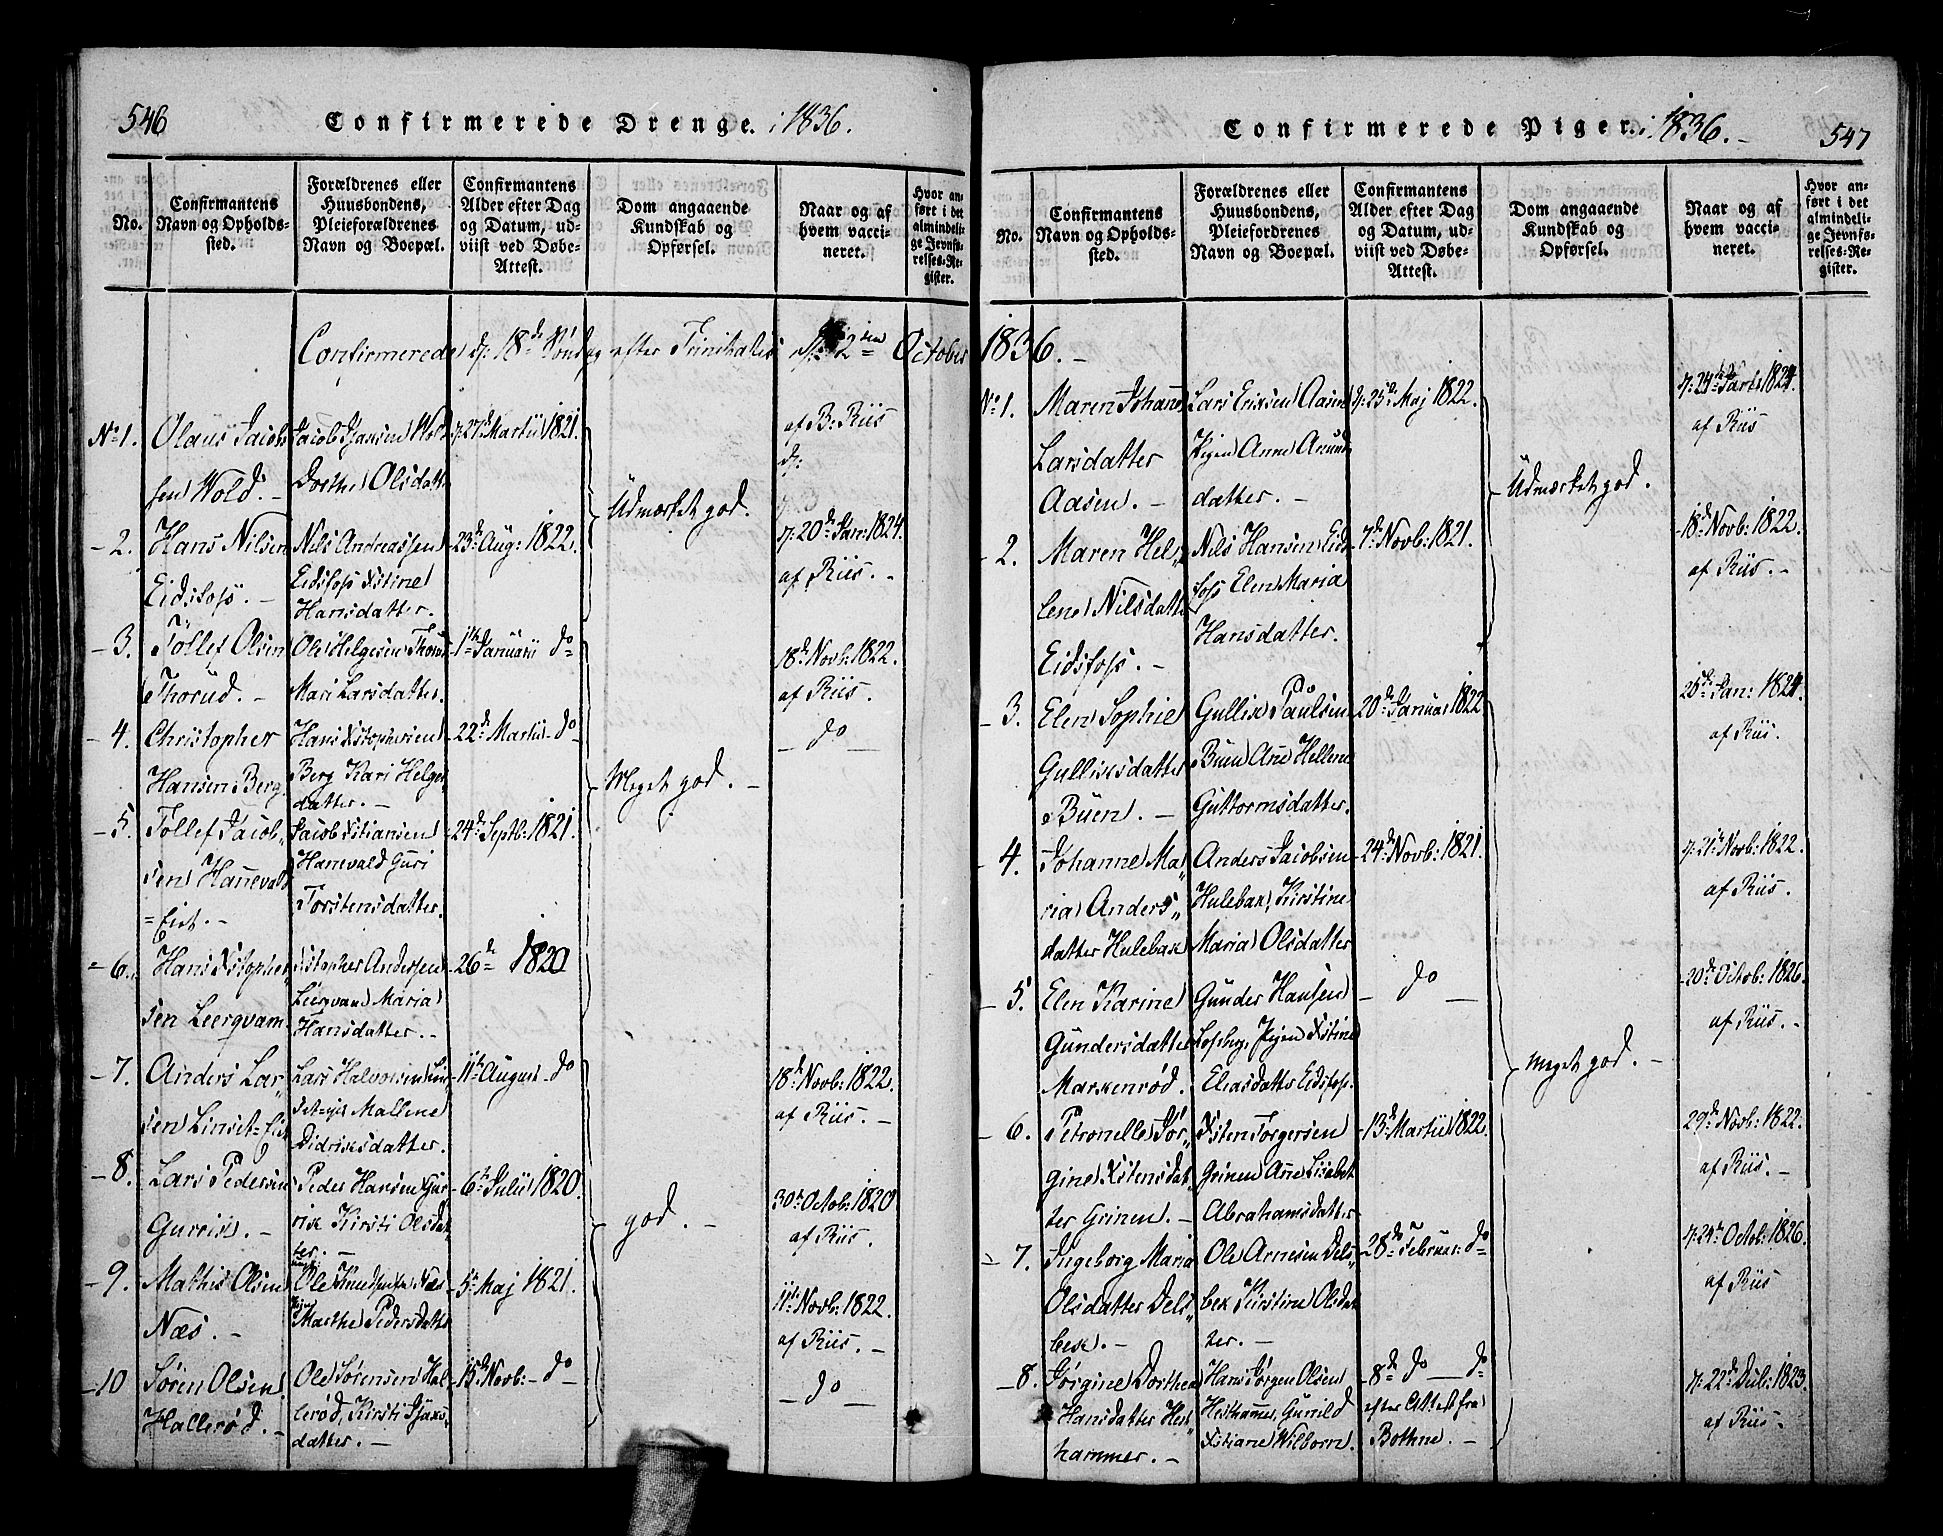 546
Confirmerede Drenge. i 1836.
No.
Confirmantens
Navn og Opholds-
sted.
Forældrenes eller
Huusbondens,
Pleieforældrenes
Navn og Boepæl.
Confirmantens
Alder efter Dag
og Datum, ud-
viist ved Døbe-
Attest.
Dom angaaende
Kundskab og
Opførsel.
Naar og af
hvem vacci-
neret.
Hvor an-
ført i det
almindeli-
ge Jevnfø-
relses-Re-
gister.
Confirmerede d: 18de Søndag efter Trinitatis d: 2den October 1836.-
No 1.
Olaus Jacob-
sen Wold.-
Dorthe Olsdatt
d: 27 Martii 1821.
af B: Riis
d:
Udmærket god.
- 2.
Hans Nilsen
Eidsfoss.-
Nils Andreassen
Eidsfoss Xstine
Hansdatter.
23de Aug: 1822.
d: 20de Jan: 1824.
af Riis.-
- 3.
Tollef Olsen
Thorud.-
Ole Helgesen Thorud
Mari Larsdatter.
1te Januarii do
18de Novb: 1822.
af Riis.
- 4.
Christopher
Hansen Berg.
Hans Xstophersen
Berg Kari Helges
datter.-
22de Martii do
- do -
Meget god.-
- 5.
Tollef Jacob,,
sen Hanevald
=Eiet.-
Jacob Xstiansen
Hanevald Guri
Torstensdatter.
24de Septb: 1821.
- 6.
Hans Xstopher,,
sen Leergvam
Xstopher Andersen
Leergvam Maria
Hansdatter.-
26de 1820
- 7.
Anders Lar,,
sen Linset=Eiet
Lars Halvorsen Lin
set=ejet Mallene
Didriksdatter.
11te August do
18de Novb: 1822.
af Riis.-
- 8.
Lars Pedersen
Gurrik.-
Peder Hansen Gur
rik Kirsti Olsdat
ter.-
6te Julii 1820.
god.-
30te Octob: 1820
af Riis.
- 9.
Mathis Olsen
Næs.-
Ole Knudsen Næs
Marthe Pedersdatter
5te Maj 1821.
11te Novb: 1822.
af Riis.-
- 10
Søren Olsen
Hallerød.-
Ole Sørensen Hal
lerød, Kirsti
datter.-
15de Novb: - do
- do -
Confirmerede Piger. i 1836.-
547
No.
Confirmantens
Navn og Opholds-
sted.
Forældrenes eller
Huusbondens,
Pleiefordrenes
Navn og Boepæl.
Confirmantens
Alder efter Dag
og Datum, ud-
viist ved Døbe-
Attest.
Dom angaaende
Kundskab og
Opførsel.
Naar og af
hvem vacci-
neret.
Hvor an-
ført i det
almindeli-
ge Jevnfø-
relses-Re-
gister.
No 1.
Maren Johanne
Larsdatter
Aasen.-
Lars Erixsen Aasen
Pigen Anne Amund
datter.-
d: 25de Maj 1822.
Udmærket god.
af Riis
- 2.
Maren Hel,,
lene Nilsdatter
Eidsfoss.-
Nils Hansen Eids
foss Elen Maria
Hansdatter.
7de Novb: 1821.
18de Novb: 1822.
af Riis.-
- 3.
Elen Sophie
Gulliksdatter
Buen.-
Gullik Paulsen
Buen Ane Hellene
Guttormsdatter.
20de Januar 1822
25de Jan: 1824.
af Riis.
- 4.
Johanne Ma,,
ria Anders,,
datter Hulebak
Anders Jacobsen
Hulebak, Kirstine
Maria Olsdatter
24de Novb: 1821.
d: 21te Novb: 1822.
af Riis.
- 5.
Elen Karine
Gundersdatter
Markerød.
Gunder Hansen
Pigen Xstine
Eliasdatter Eidsfoss.
- do -
20de Octob: 1826.
af Riis.-
meget god.-
- 6.
Petronelle Jør,,
gine Xstensdat,,
ter Grinen.-
Xsten Torgersen
Grinen Ane Lisebet
Abrahamsdatter
13de Martii 1822.
29de Novb: 1822.
af Riis.-
= 7.
Ingeborg Maria
Olsdatter Dels,,
bek.-
Ole Arnesen Dels,,
bek Kirstine Olsdat
ter.-
28de Februar: do
d: 24de Octob: 1826.
af Riis
- 8.
Jørgine Dorthea
Hansdatter Hest
hammer.-
Hans Jørgen Olsen
Hesthammer, Gunild
Xstiane Wilborn.
8de do - do
efter Attest fra
Bothne.-
af Riis